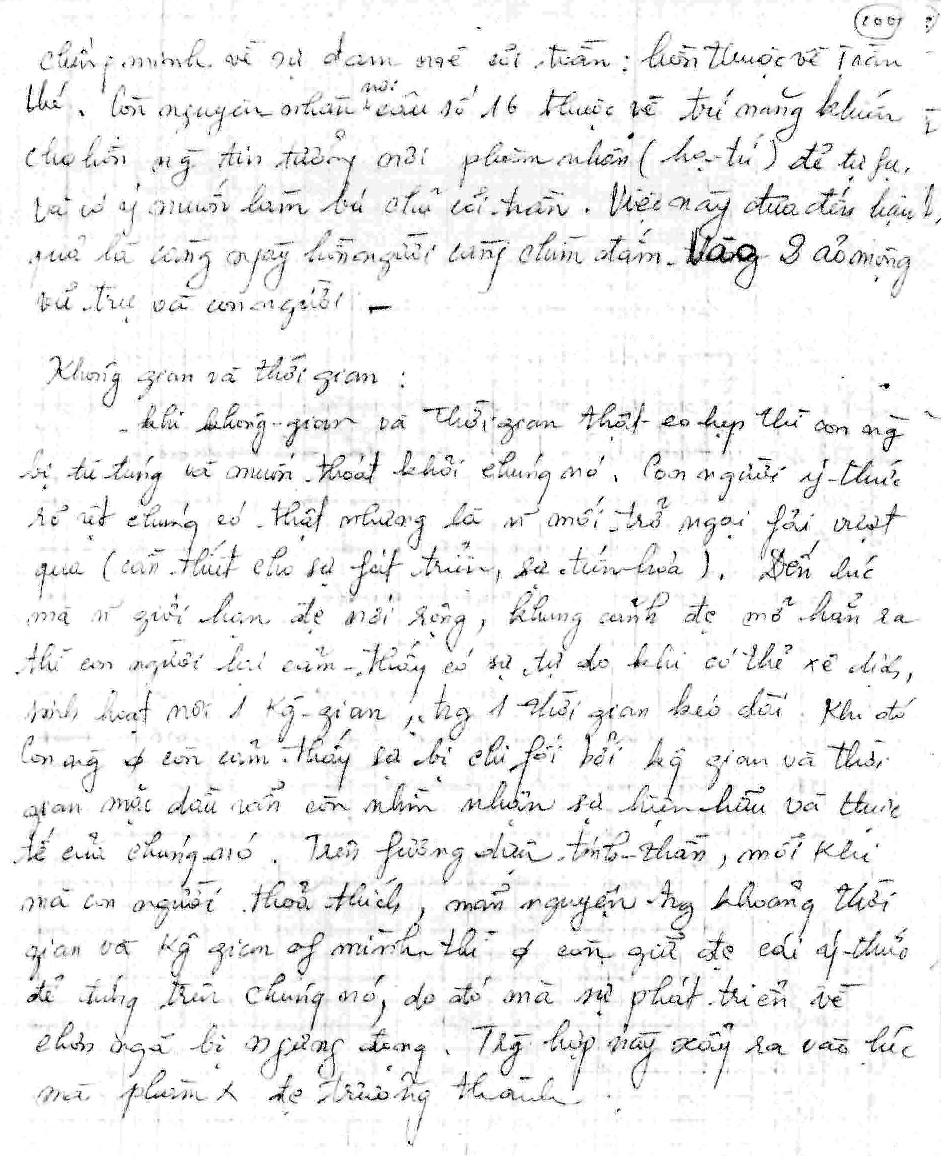 1001
chứng minh về sự đam mê cõi trần: hồn thuộc về Trần
thế. Còn nguyên nhân nơi câu số 16 thuộc về trí năng khiến
cho hồn ng̃ tin tưởng nơi phàm nhân (hạ-trí) để tự fụ,
và có ý muốn làm bá chủ cõi trần. Việc này đưa đến hậu
quả là càng ngày hồn người càng chìm đắm vào 3 ảo mộng
vũ trụ và con người –
Không gian và thời gian :
- khi không-gian và thời gian thật eo hẹp thì con ng̃
bị tù túng và muốn thoát khỏi chúng nó. Con người ý-thức
rõ rệt chúng có thật nhưng là n~ mối trở ngại fải vượt
qua (cần thiết cho sự fát triển, sự tiến-hóa). Đến lúc
mà n~ giới hạn đc nới rộng, khung cảnh đc mở hẳn ra
thì con người lại cảm-thấy có sự tự do khi có thể xê dịch,
sinh hoạt nơi 1 Kg̃-gian, trg 1 thời gian kéo dài. Khi đó
Con ng̃ ϕ còn cảm thấy sự bị chi fối bởi kg̃ gian và thời
gian mặc dầu vẫn còn nhìn nhận sự hiện hữu và thực
tế của chúng nó. Trên fương diện tinh-thần, mỗi khi
mà con người thỏa thích, mãn nguyện trg khoảng thời
gian và kg̃ gian of mình thì ϕ còn giữ đc cái ý-thức
để từng trải chúng nó, do đó mà sự phát triển về
chơn ngã bị ngưng đọng. Trg̃ hợp này xảy ra vào lúc
mà phàm x đc trưởng thành.